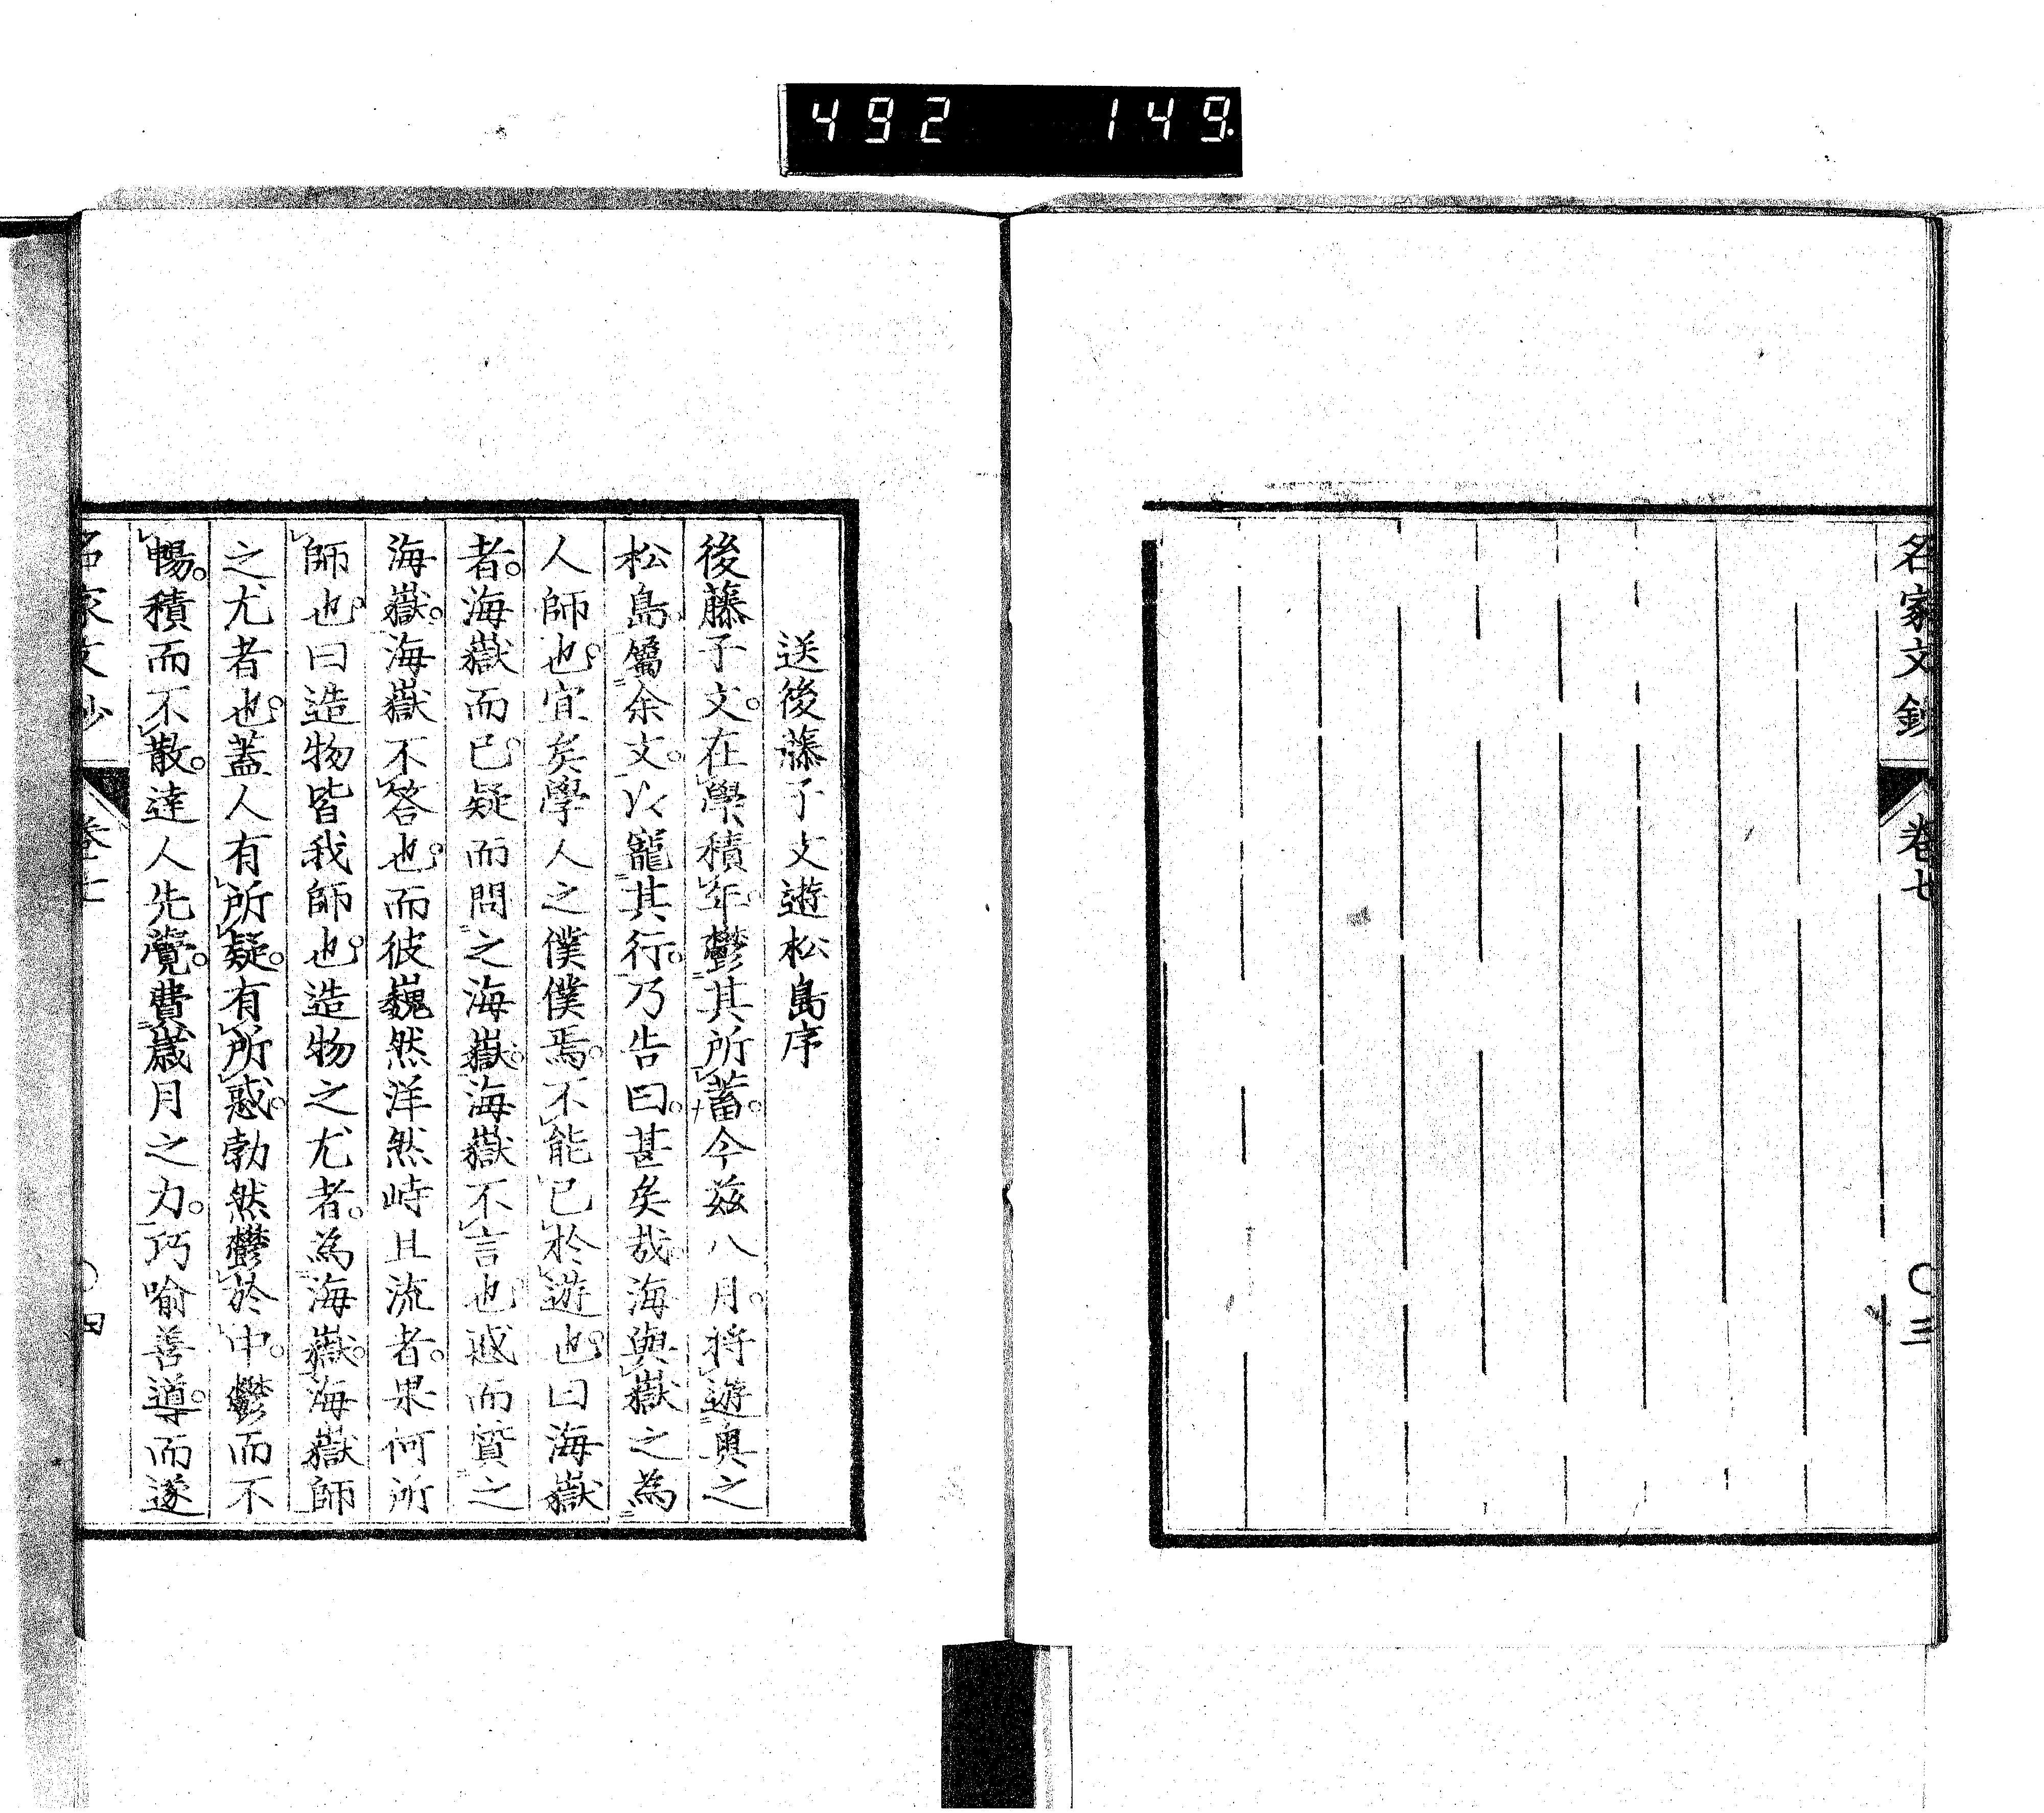 492 149.
名家文鈔 卷七 〇三
送後藤子文遊松島序
後藤子文。在學積年。鬱其所蓄。今茲八月。將遊奧之
松島。屬余文。以寵其行。乃告曰。甚矣哉。海與嶽之為
人師也。宜矣學人之僕僕焉。不能已於遊也。曰海嶽
者。海嶽而已。疑而問之海嶽。海嶽不言也。惑而質之
海嶽。海嶽不答也。而彼巍然洋然峙且流者。果何所
師也。曰造物皆我師也。造物之尤者。為海嶽。海嶽師
之尤者也。蓋人有所疑。有所惑。勃然鬱於中。鬱而不
暢。積而不散。達人先覺。費歲月之力。巧喻善導。而遂
名家文鈔 卷七 〇四